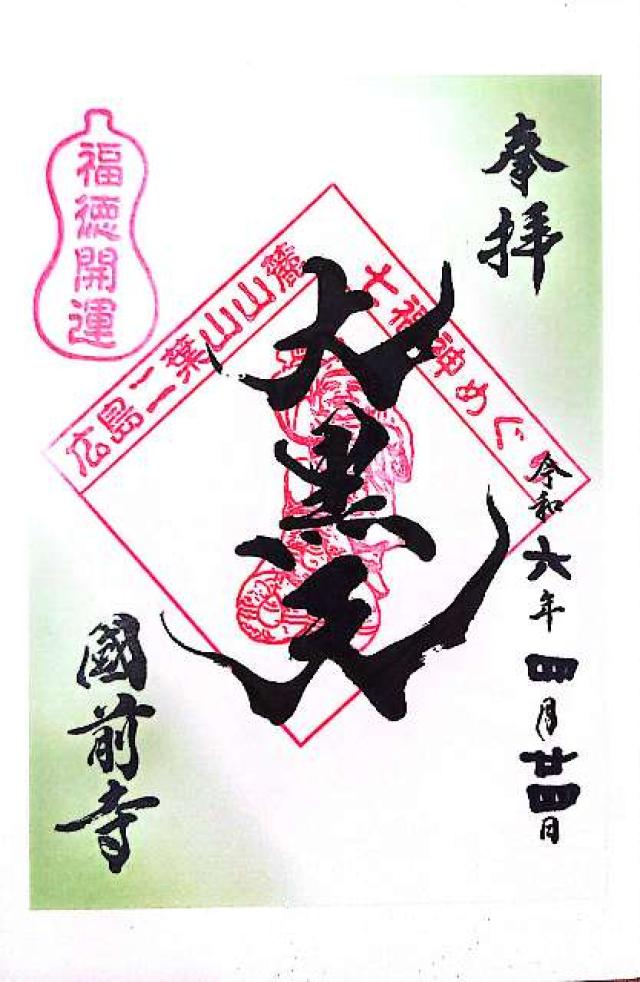 奉拝
令和六年四月廿四日
七福神めぐ
大黒天
広島二葉山山麓
福徳開運
國前寺